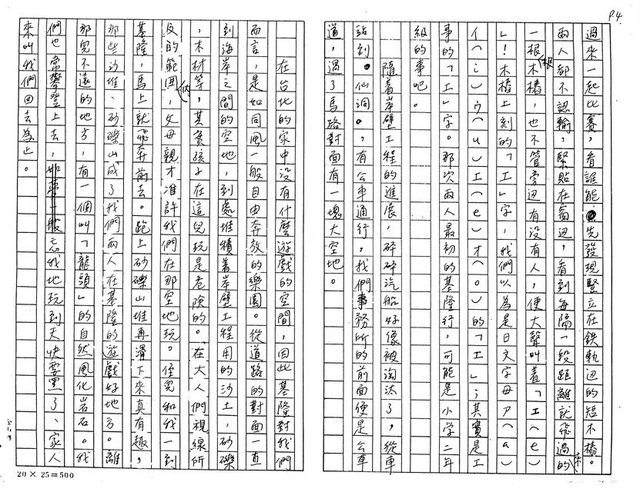 P.4
過來一起比賽,看誰能先發現豎立在鉄軌迅的短木樁。
兩人都不認輸,緊貼在窗迅,看到每隔一段距離就飛過的
一根木樁,也不管旁迅有沒有人,便大聲叫着「エ(e)
」!木樁上刻的「エ」字,我們以為是日文字母ア(a)
イ(i)ウ(u)エ(e)オ(o)的「エ」;其實是工
事的「工」字。那次兩人最初的基隆行,可能是小学二年
級的事吧。
隨着岸壁工程的進展,砰砰汽船好像被淘汰了,從車
站到仙洞,有公車通行,我們事務所的前面便是公車
道,過了馬路對面有一塊大空地。
在台北的家中没有什麼遊戲的空間,因此基隆對我們
而言,是如同風一般自由奔放的樂園。從道路的對面一直
到海岸之間的空地,到處堆積着岸壁工程用的沙土,砂礫
,木材等,父母親才准許我們在那空地玩。侄兒和我一到
及的範囲内,其養孩子在這兒玩是危險的。在大人們視線所
基隆,馬上就飛奔前去。跑上砂礫山堆再滑下來真有趣,
那些沙堆、砂礫山成了我們兩人在基隆的遊戲好地方。離
那兒不遠的地方,有一個叫「龍頭」的自然風化岩石。我
們也常攀登上去,忘我地玩到天快黑了、家人
來叫我們回去為止。
20×25=500